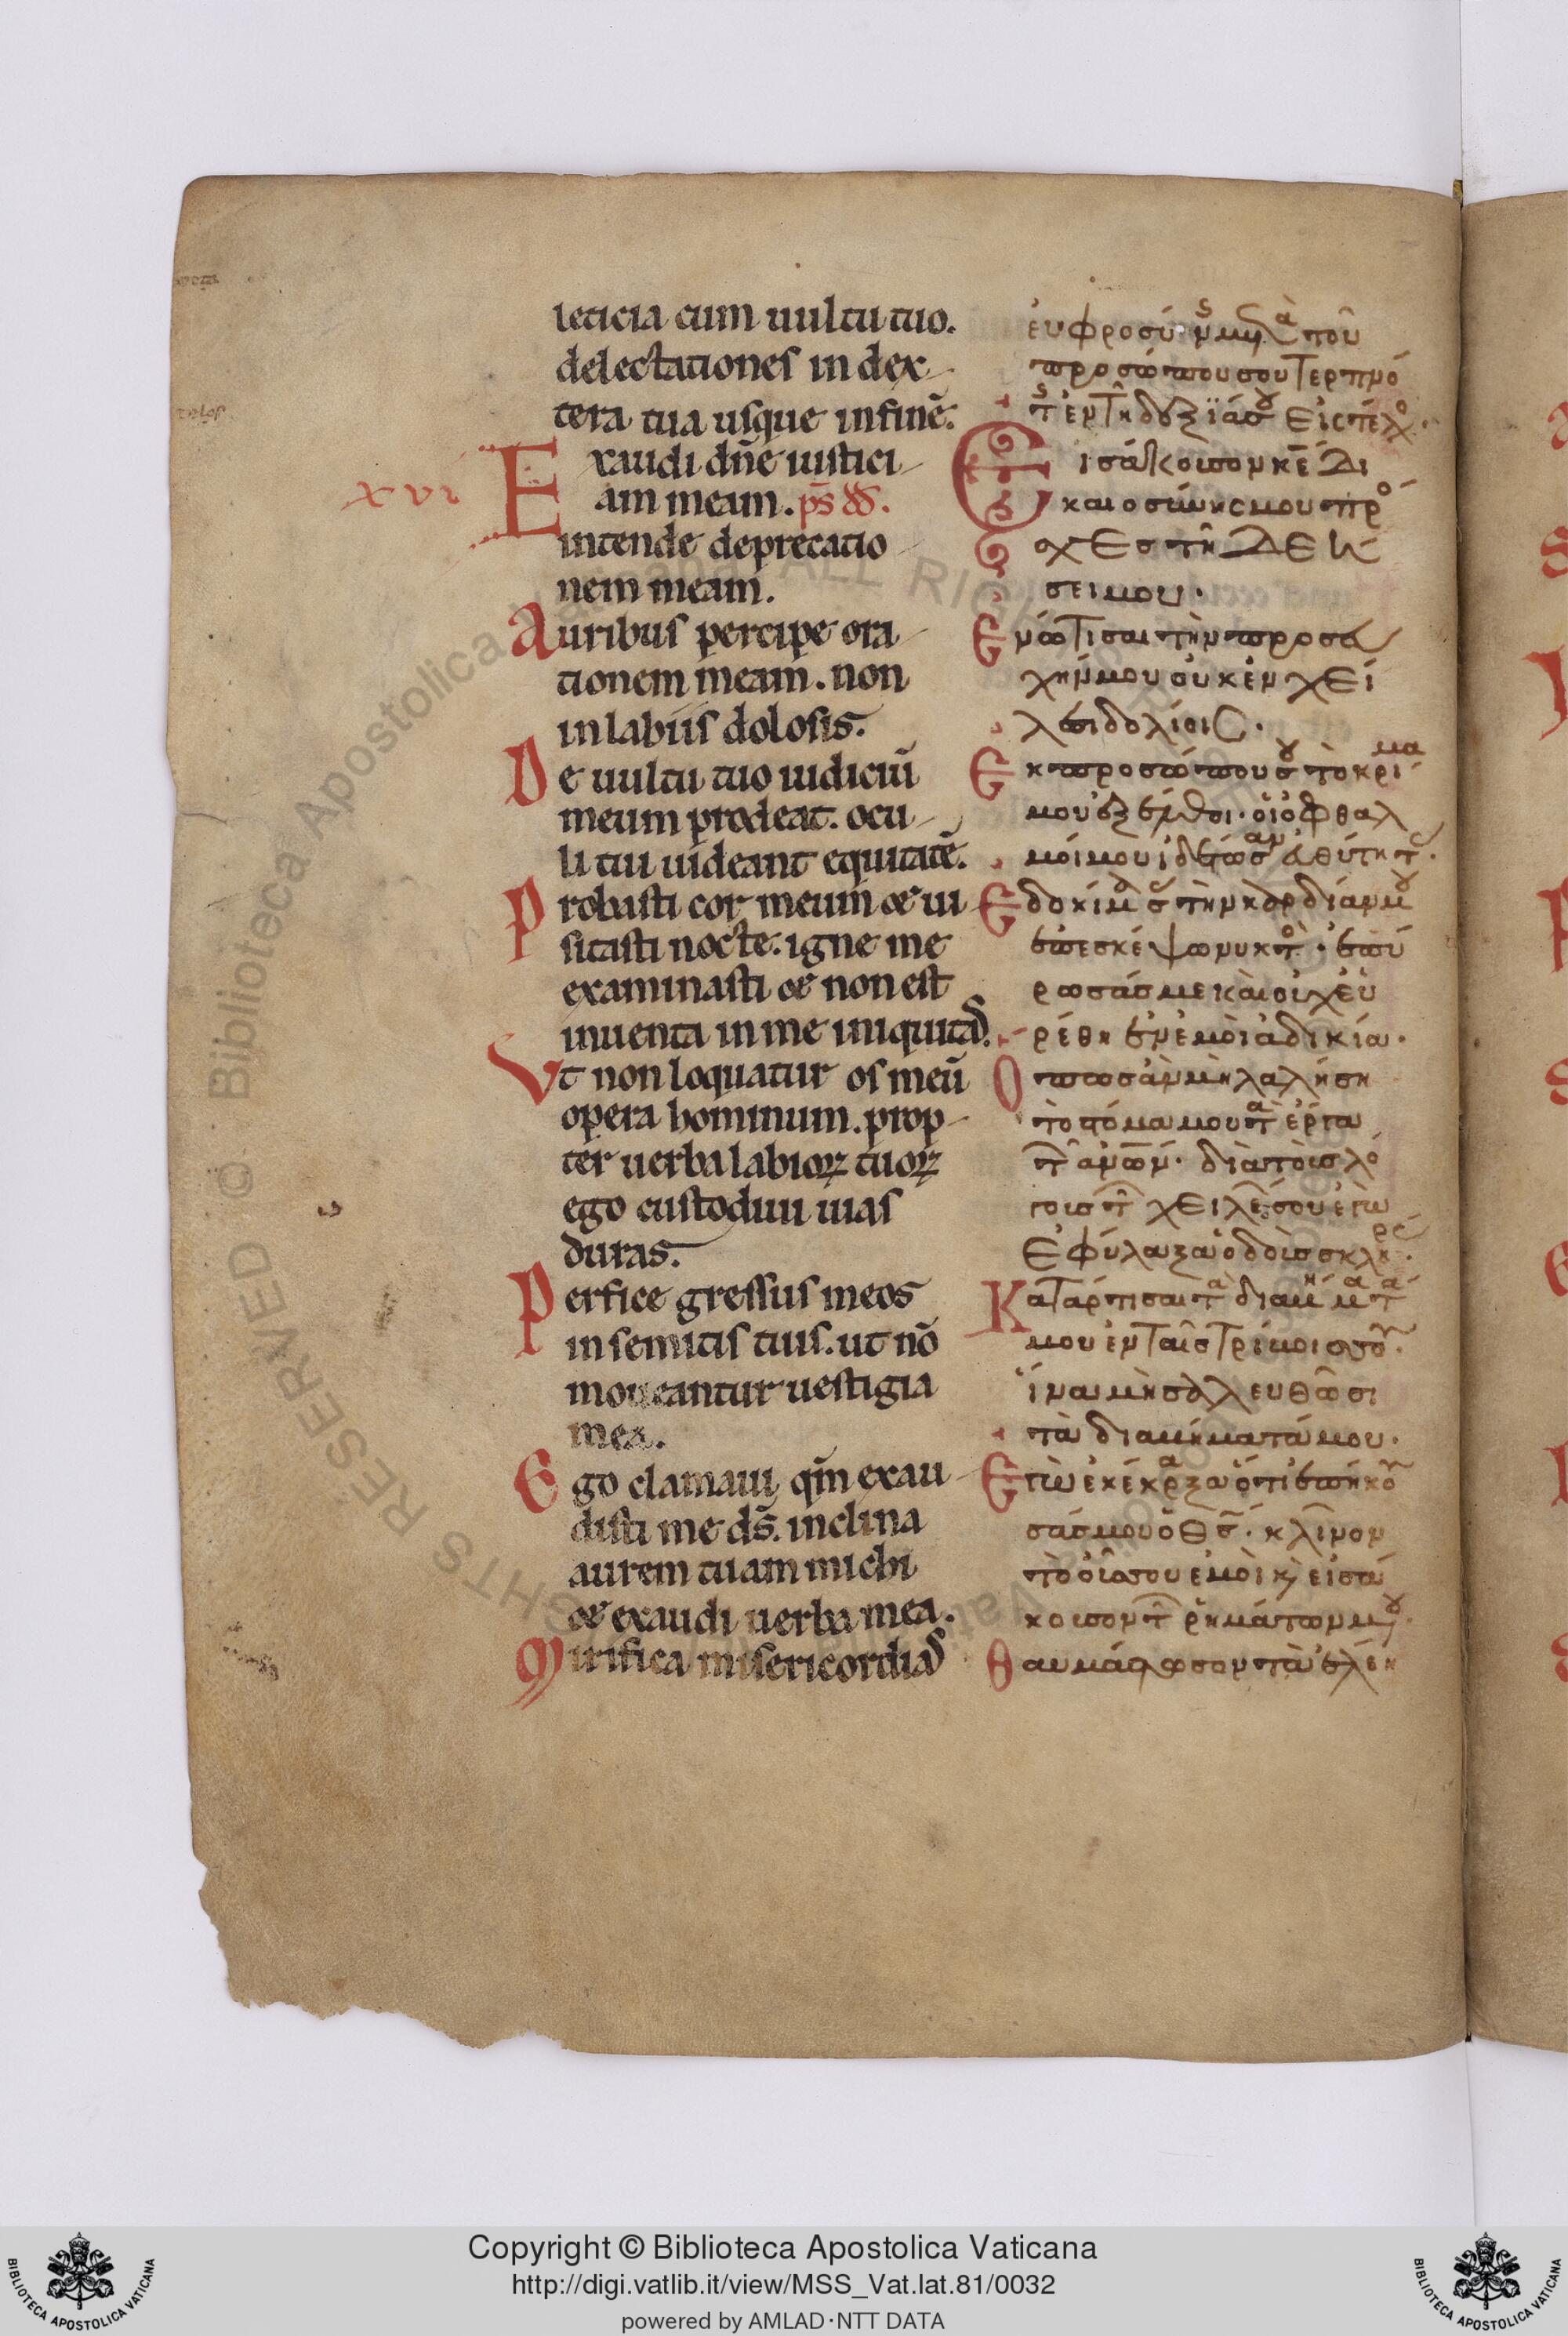 leticia cum uultu tuo.
delectationes in dex-
tera tua usque in finē.
xvi Exaudi dn̄e iustici-
am meam. ps̄ dd̄.
intende deprecatio-
nem meam.
Auribus percipe ora-
tionem meam. non
in labiis dolosis.
De uultu tuo iudiciū
meum prodeat. ocu-
li tui uideant equitatē.
Probasti cor meum & ui-
sitasti nocte. igne me
examinasti & non est
inuenta in me iniquitas.
Vt non loquatur os meū
opera hominum. prop-
ter uerba labioꝝ tuoꝝ
ego custodiui uias
duras.
Perfice gressus meos
in semitis tuis. ut nō
moueantur uestigia
mea.
Ego clamaui qm̄ exau-
disti me ds̄. inclina
aurem tuam michi
& exaudi uerba mea.
Mirifica misericordias
προσώπου σου τερπνό
Εἰσάκουσον κ̄ε δι
καιοσύνης μου πρό
σχες τῆ δεή
σει μου.
Ενώτισαι τὴν προσευ
χήν μου οὐκ ἐν χεί
λεσι δολίοις.
Εκ προσώπου σου τὸ κρίμα
μου ἐξέλθοι. οἱ ὀφθαλ
ἐπεσκέψω νυκτὸ. ἐπύ
ρωσάς με καὶ οὐχ εὑ
ρέθη ἐν ἐμοὶ ἀδικία.
Οπως ἂν μὴ λαλήση
τὸ στόμα μου τὰ ἔργα
τῶν ἀν̄ων. διὰ τοὺς λό
γους τῶν χειλέ σου ἐγὼ
ἐφύλαξα ὁδοὺς σκληράς.
Καταρτισαι τὰ διαβήματά
μου ἐν ταῖς τρίβοις σου.
ἵνα μὴ σαλευθῶσι
τὰ διαβήματά μου.
Εγὼ ἐκέκραξα ὅτι ἐπήκου
σάς μου ὁ θ̄ς. κλῖνον
τὸ οὖς σου ἐμοὶ κ εἰσά
κουσον τῶν ῥημάτων μου.
Θαυμάστωσον τὰ ἐλέη
Copyright © Biblioteca Apostolica Vaticana
http://digi.vatlib.it/view/MSS_Vat.lat.81/0032
powered by AMLAD·NTT DATA